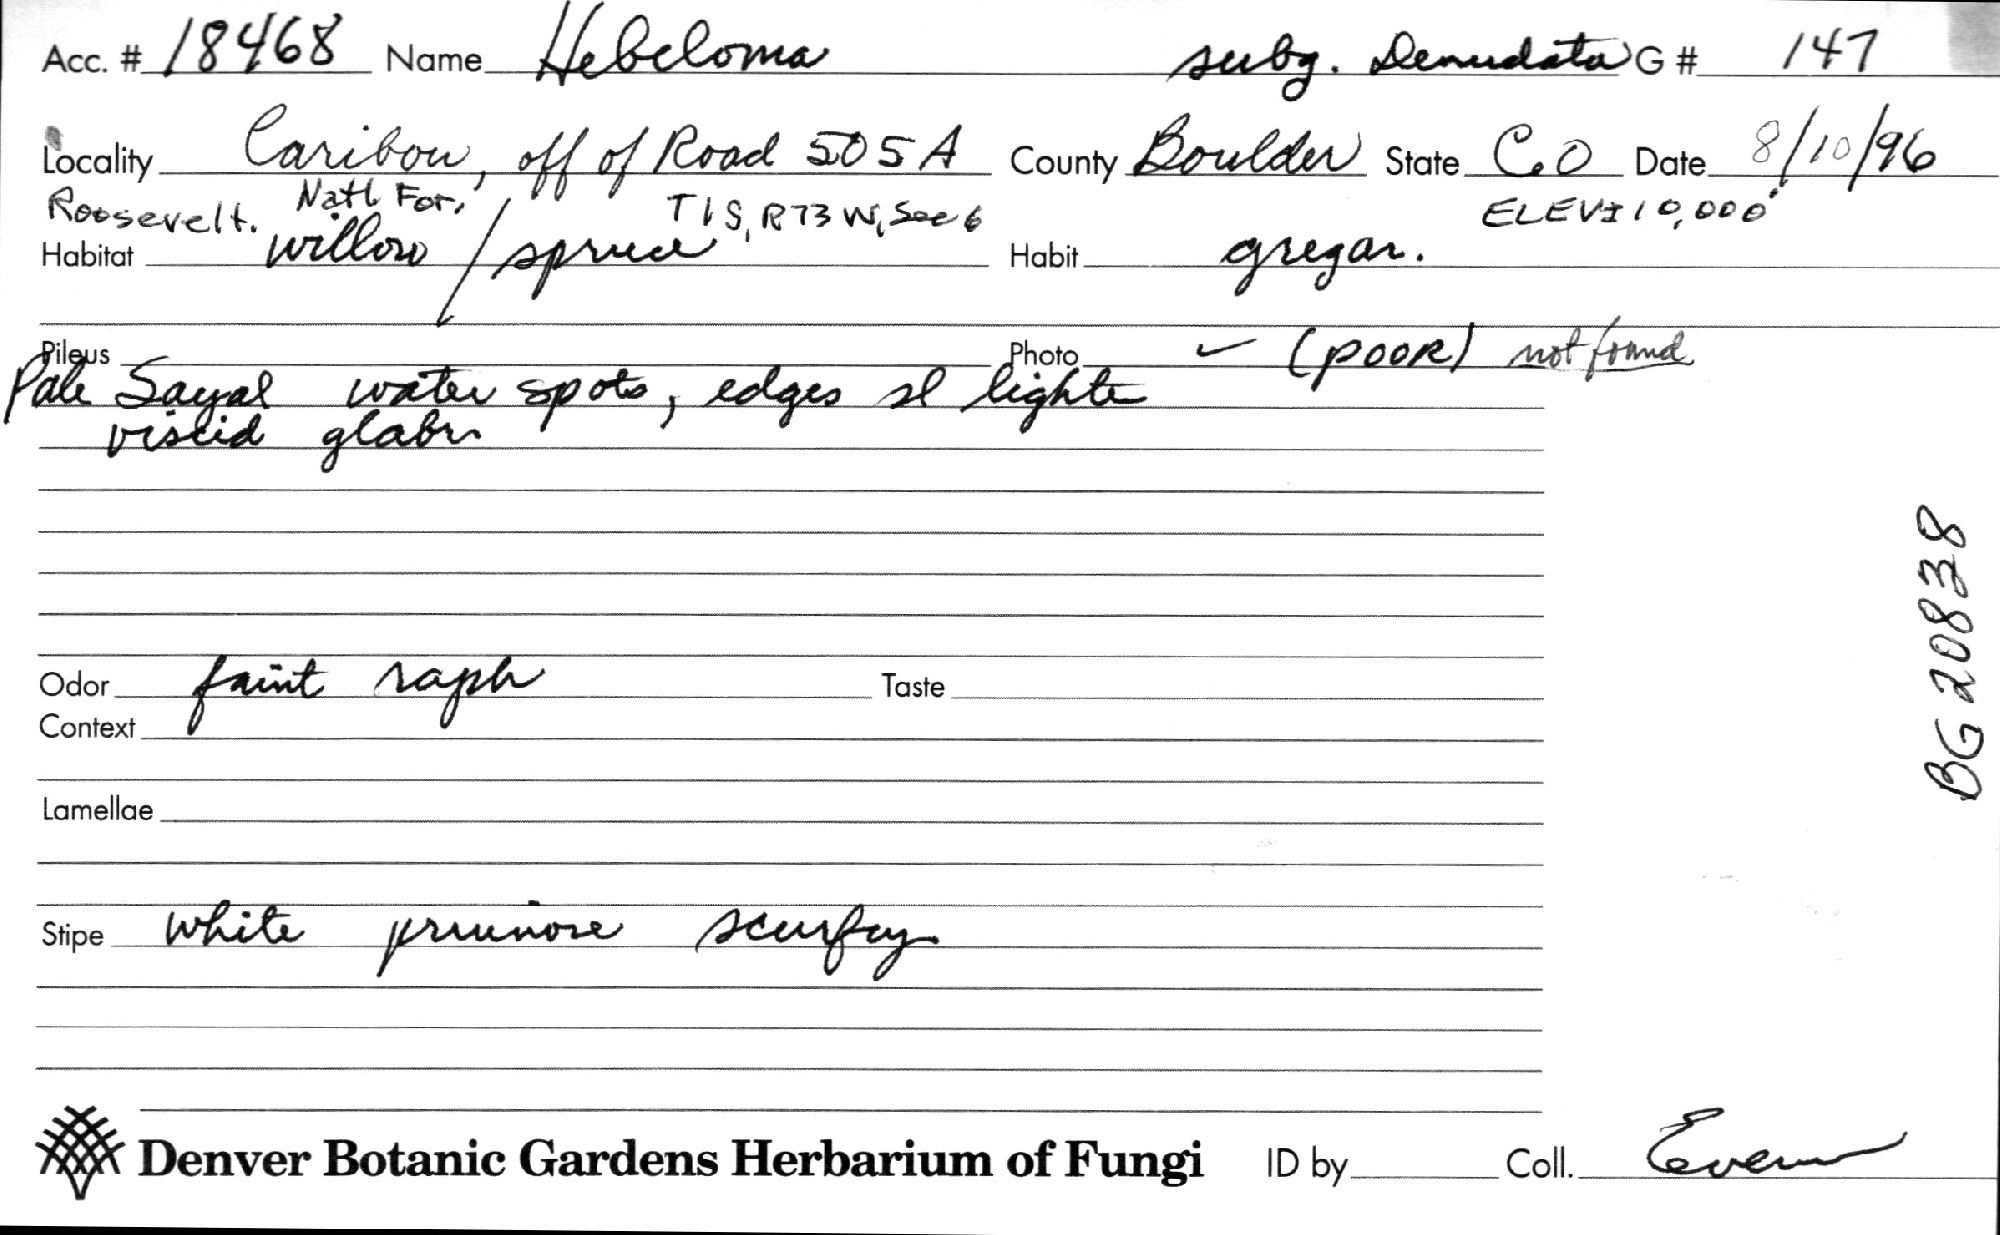 Acc. # 18468 Name Hebeloma subg. Denudata G # 147
Locality Caribou, off of Road 505 A County Boulder State C.O Date 8/10/96
Roosevelt. Nat'l For, T1S, R73W, Sec 6 ELEV ± 10,000'
Habitat willow / spruce Habit gregar.
Pileus Photo ✓ (POOR) not found
Pale Sayal water spots, edges sl lighter
viscid glabr
Odor faint raph Taste
Context
Lamellae
Stipe white pruinose scurfy
Denver Botanic Gardens Herbarium of Fungi ID by Coll. Evenson
BG 20838